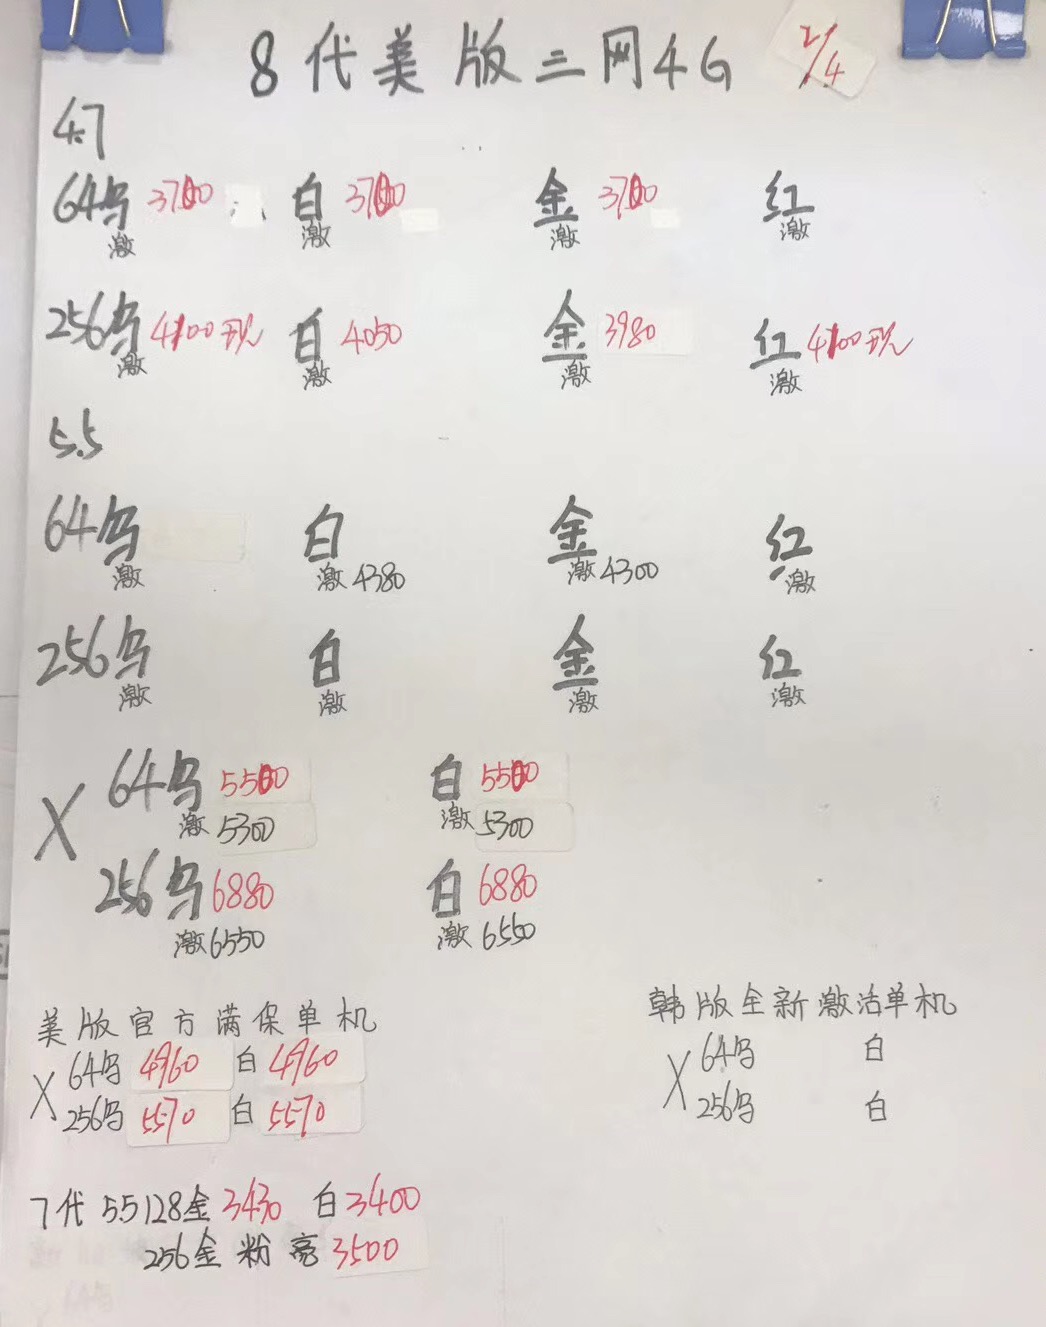 8代美版三网4G 2/4
4.7
64乌 3700 白 3700 金 3700 红
激 激 激 激
256乌 4100现 白 4050 金 3980 红 4100现
激 激 激 激
5.5
64乌 白 金 红
激 激4380 激4300 激
256乌 白 金 红
激 激 激 激
X 64乌 5500 白 5500
激 5300 激 5300
256乌 6880 白 6880
激 6550 激 6550
美版官方满保单机
X 64乌 4960 白 4960
256乌 5570 白 5570
韩版全新激活单机
X 64乌 白
256乌 白
7代 55128金 3430 白 3400
256金 粉 亮 3500